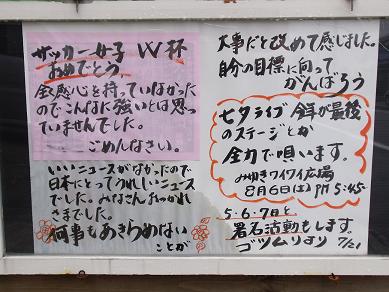 サッカー女子 W杯
おめでとう。
全然感心を持っていなかった
のでこんなに強いとは思っ
ていませんでした。
ごめんなさい。
いいニュースがなかったので
日本にとってうれしいニュース
でした。みなさんおつかれ
さまでした。
何事もあきらめない
ことが
大事だと改めて感じました。
自分の目標に向って
がんばろう
七夕ライブ 今年が最後
のステージとか
全力で唄います。
みゆきワイワイ広場
8月6日(土)PM5:45-
5・6・7日と
岩石活動もします。
ゴツムリより 7/21